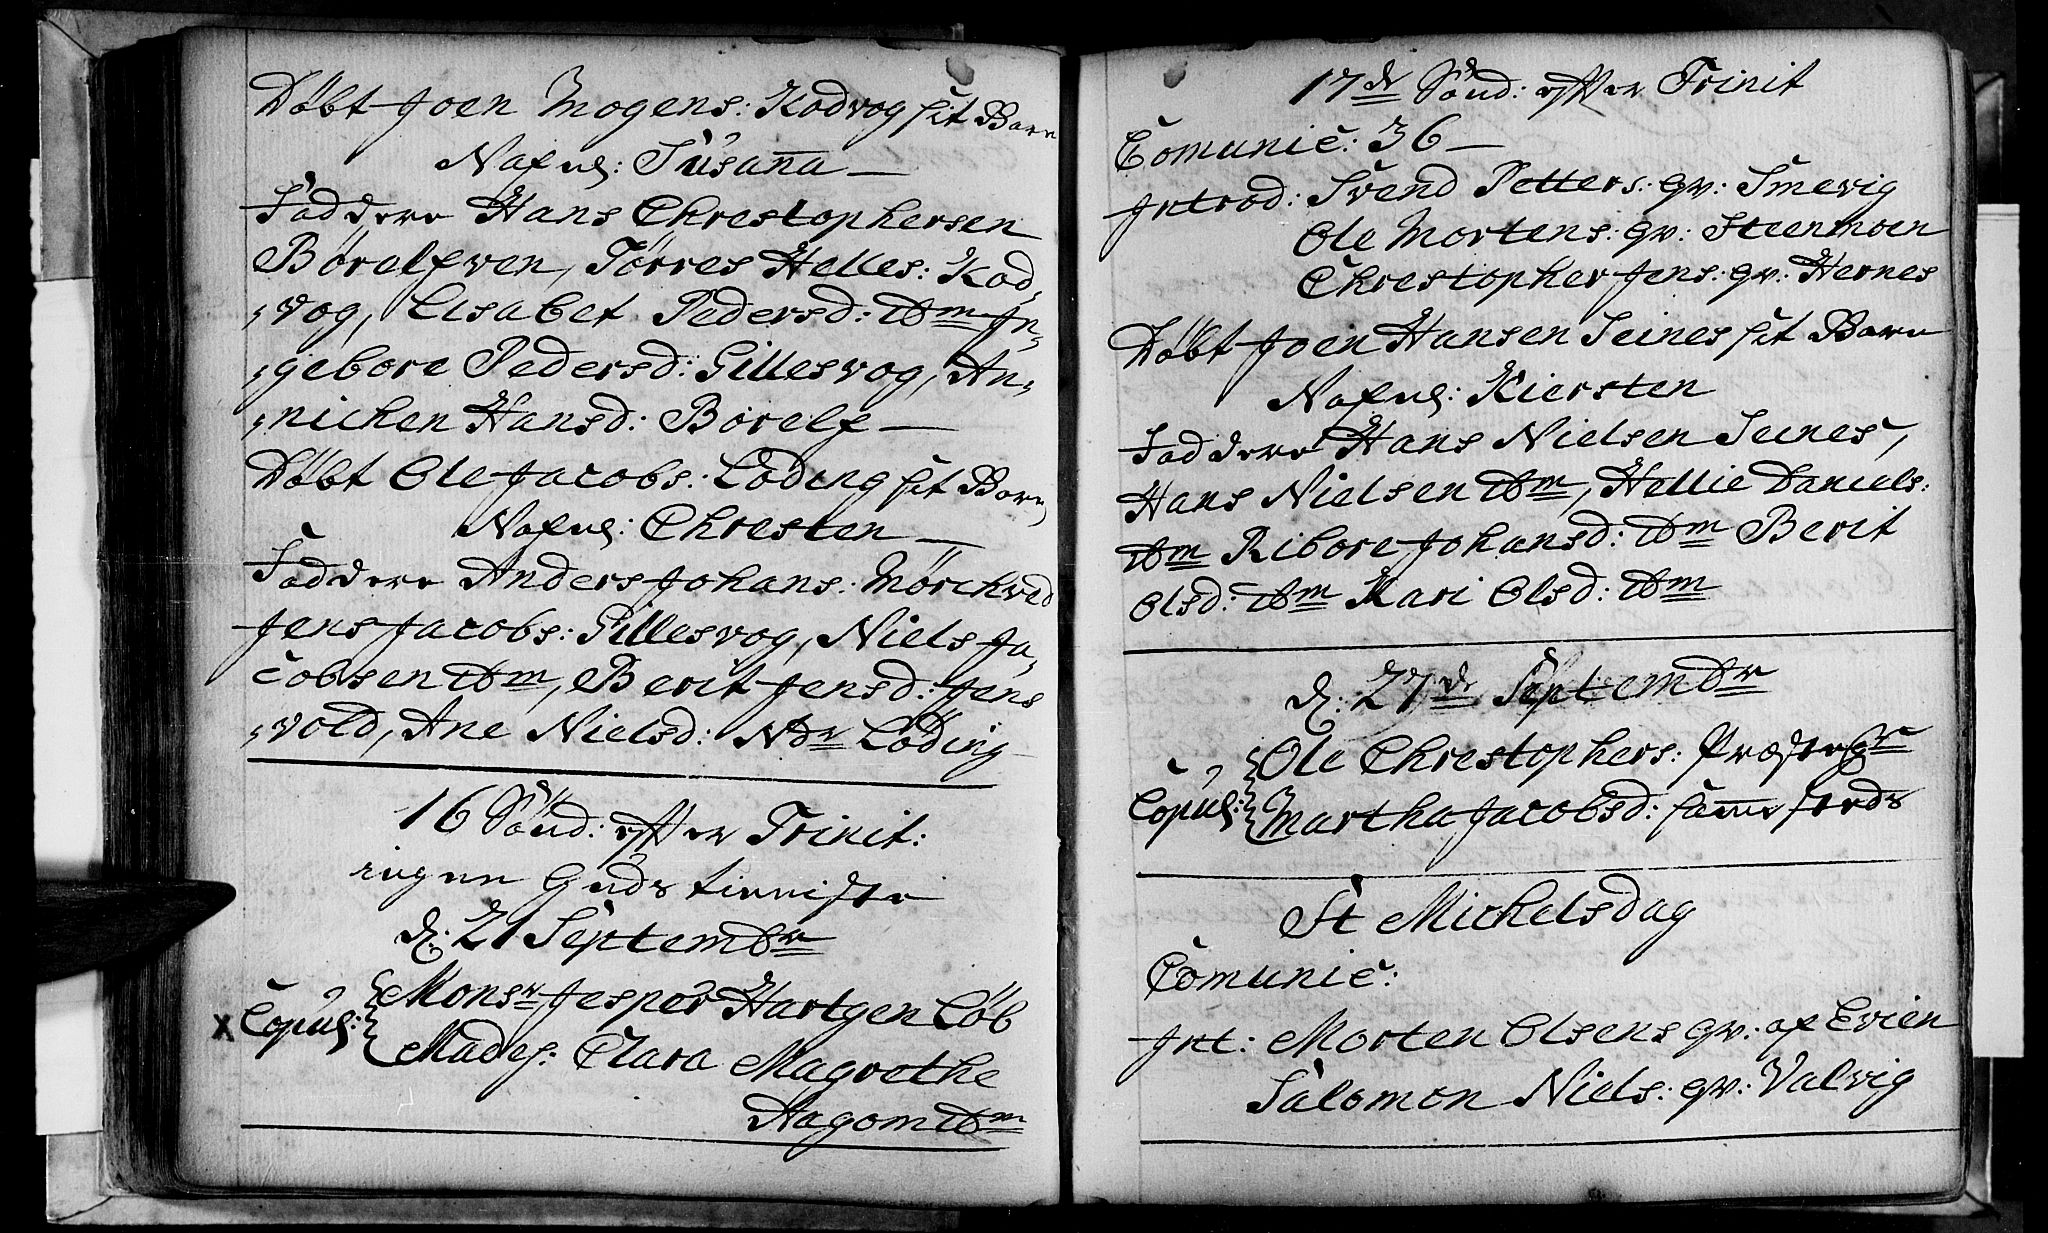 Døbt Joen Mogens: Kodvog sit Barn
Nafnl: Susanna —
Faddere Hans Chrestophersen
Børelfven, Tørres Helles: Kod-
-vog, Elsabet Pedersd: ibm In-
-gebore Pedersd: Gillesvog, An-
-nichen Hansd: Borelf —
Døbt Ole Jacobs: Löding sit Barn
Nafnl: Chresten —
Faddere Anders Johans: Mörchved
Jens Jacobs: Gillesvog, Niels Ja-
cobsen ibm, Berit Jensd: Jens
-vold, Ane Nielsd: Ndr Löding
16 Sönd: effter Trinit:
ingen Guds tienniste
d: 21 Septembr
x Copul: Monsr Jesper Hartgen Löb
Madef: Clara Magrethe
Aagom ibm
17de Sönd: effter Trinit
Comunic: 36 —
Introd: Svend Petters: qv: Smevig
Ole Mortens: qv: Steenmoen
Chrestopher Jens: qv: Hernes
Døbt Joen Hansen Seines sit Barn
Nafnl: Kiersten
Faddere Hans Nielsen Seines,
Hans Nielsen ibm, Hellie Daniels:
ibm Ribore Johansd: ibm Berit
Olsd: ibm Kari Olsd: ibm
d: 27de Septembr
Ole Chrestophers: Præstegr
Copul: Martha Jacobsd: samesteds
St Michelsdag
Comunic:
Int: Morten Olsens qv: af Evien
Salomon Niels: qv: Valvig